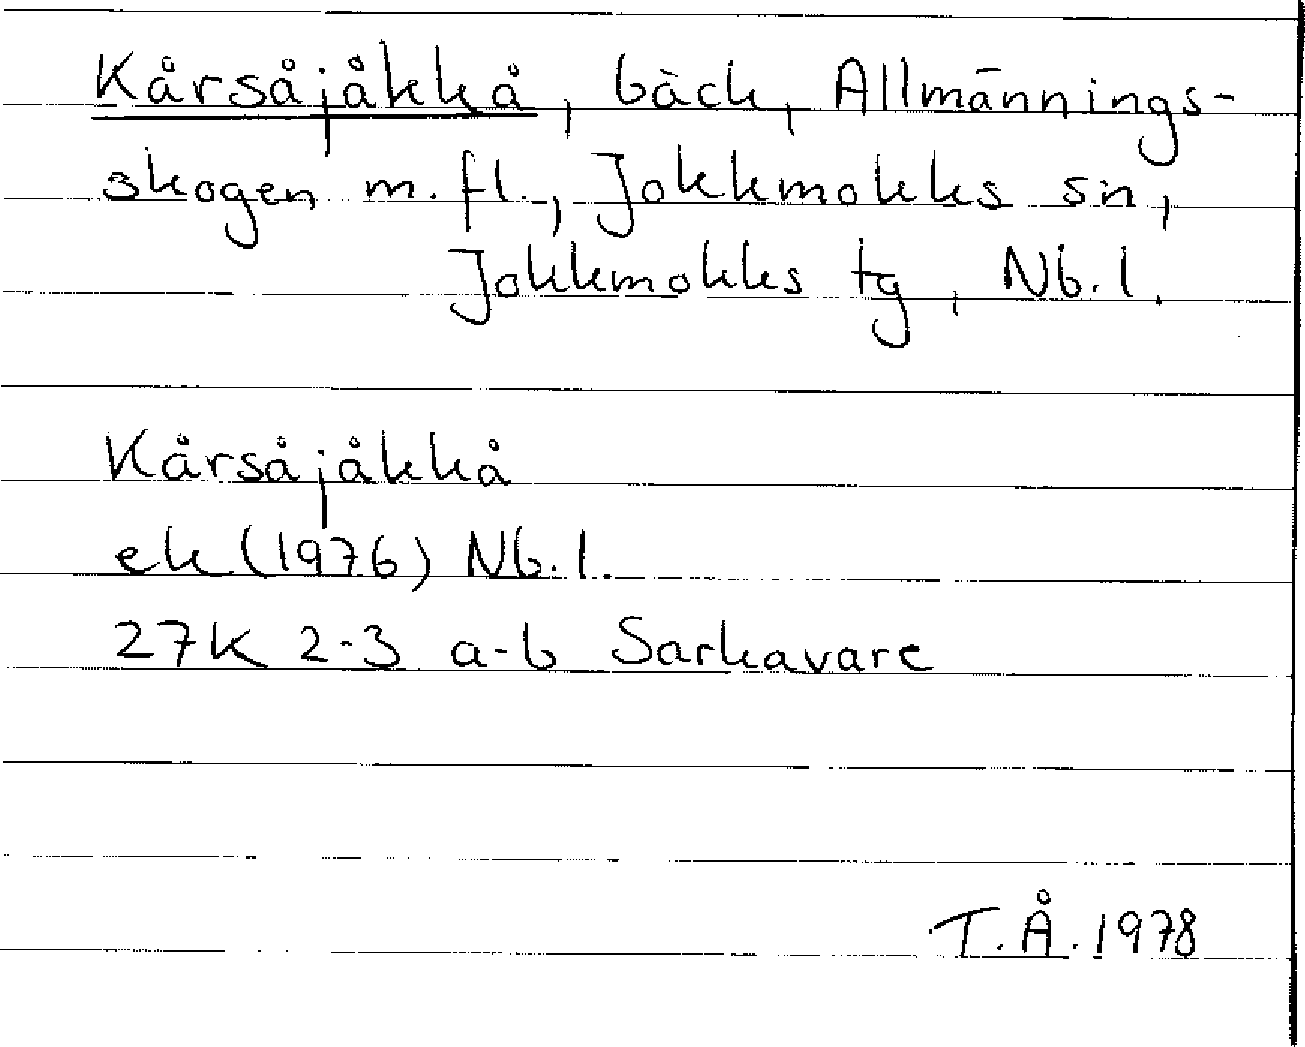 Kårsåjåkkå, bäck, Allmännings-
skogen m.fl., Jokkmokks sn,
Jokkmokks tg, Nb.l.
Kårsåjåkkå
ek (1976) Nb.l.
27K 2-3 a-b Sarkavare
T.Å. 1978